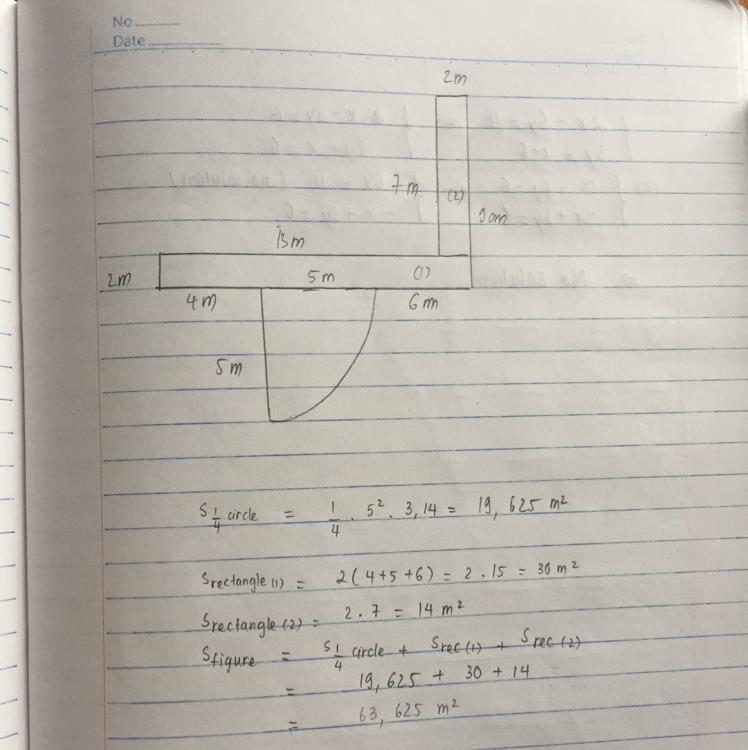 No
Date
2m
7m
(2)
9cm
13m
2m
5m
(1)
4m
6m
5m
S 1/4 circle = 1/4 . 5² . 3,14 = 19,625 m²
Srectangle (1) = 2(4+5+6) = 2 . 15 = 30 m²
Srectangle (2) = 2 . 7 = 14 m²
Sfigure = S 1/4 circle + Srec (1) + Srec (2)
= 19,625 + 30 + 14
= 63,625 m²